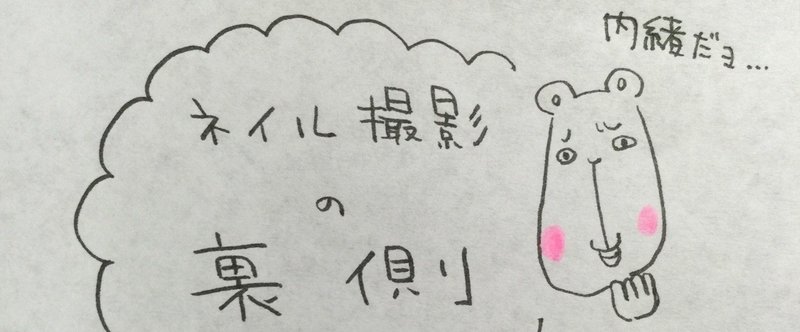 内緒だョ...
ネイル撮影
の
裏側